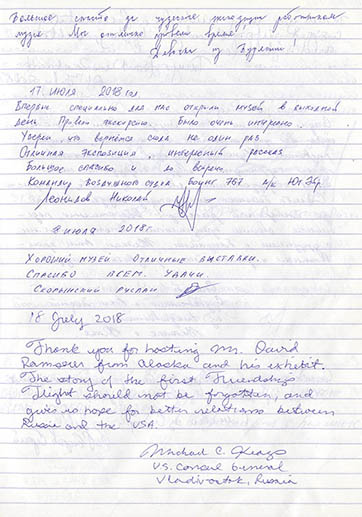 Большое спасибо за чудесную экскурсию работникам
музея. Мы отлично провели время!
Девочки из
17. июля 2018 год
Впервые специально для нас открыли музей в выходной
день. Провели экскурсию. Было очень интересно.
Уверен, что вернёмся сюда не один раз
Отличная экспозиция, интересный рассказ
Большое спасибо и до встречи.
Командир воздушного судна Боинг 767 а/к
Леонидов Николай
июля 2018г.
Хороший музей отличные выставки.
Спасибо всем. Удачи
Скорынский Руслан
18 July 2018
Thank you for hosting Mr. David
Ramseur from Alaska and his exhibit.
The story of the first Friendship
Flight should not be forgotten, and
gives us hope for better relations between
Russia and the USA.
Michael C. Keays
US. Consul General
Vladivostok, Russia